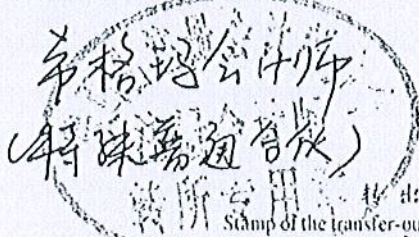 希格玛会计师
(特殊普通合伙)
转所专用
转出
Stamp of the transfer-ou